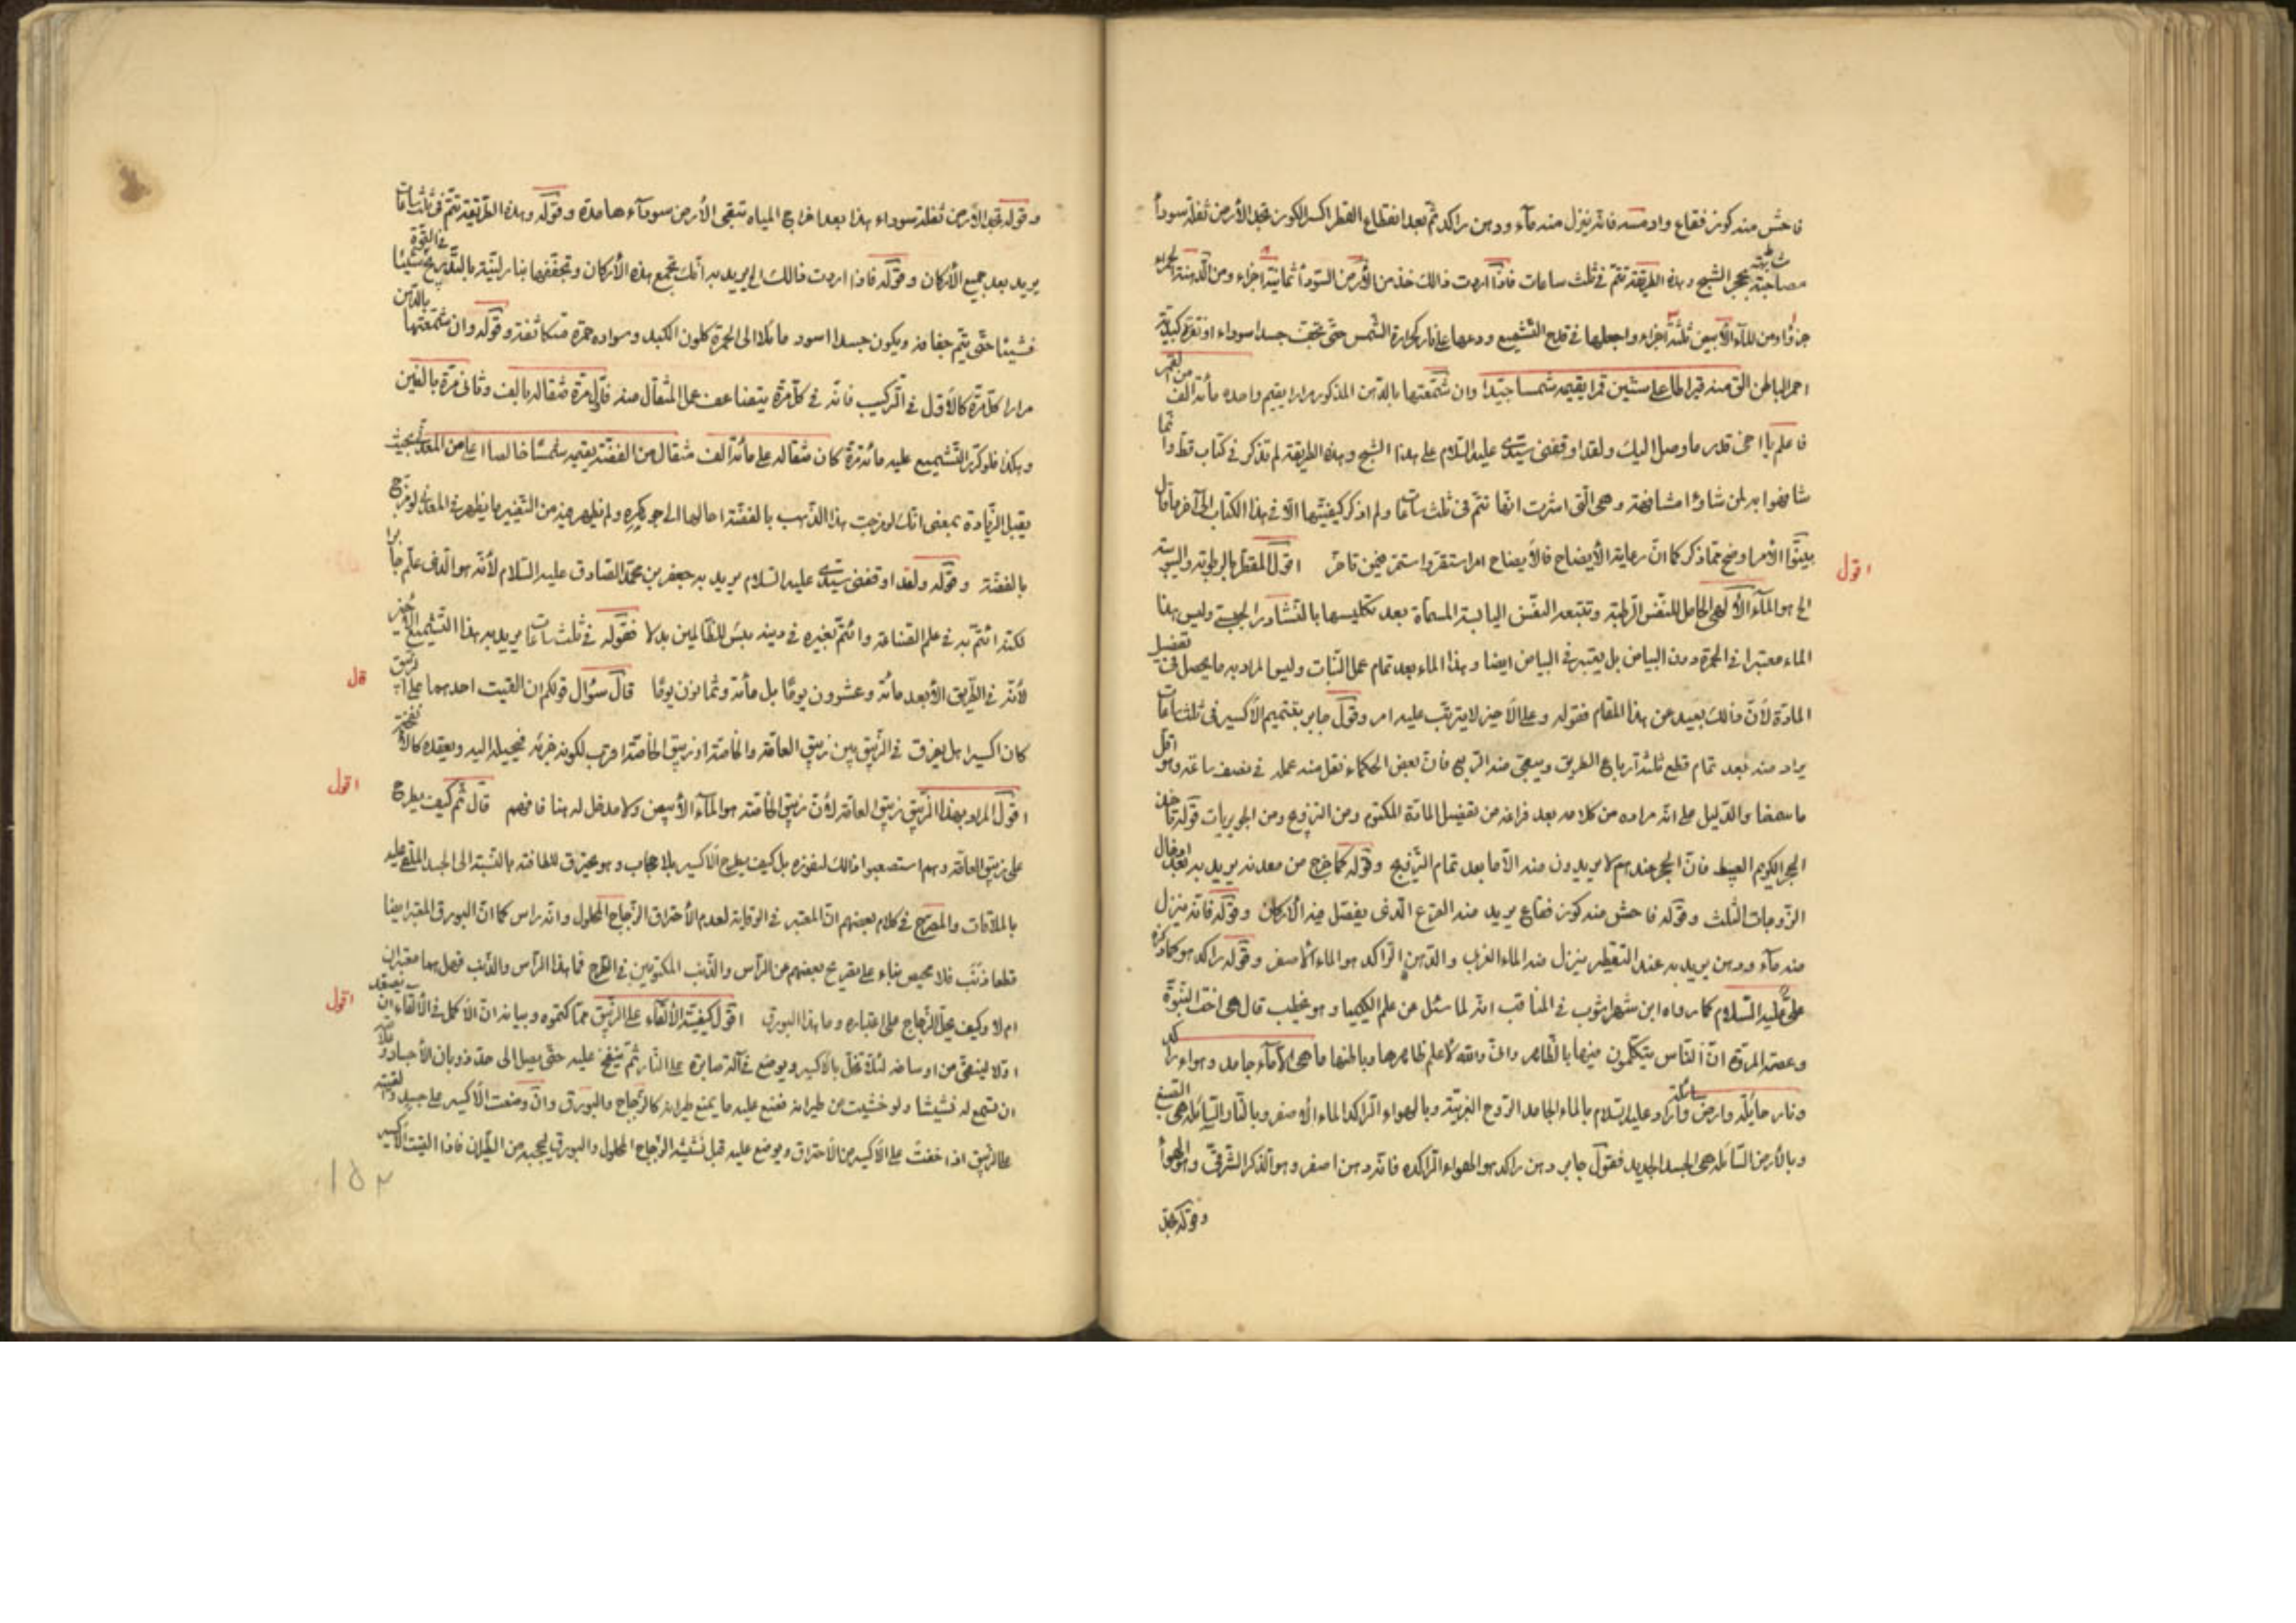 فاحش منه كوز فقاع وادمسه فانه ينزل منه مآء ودهن راكد ثم بعد انقطاع القطر اكسر الكوز تجد الأرض ثفلة سودآء
بحجر الشبح وبهذه الطريقة تتم في ثلث ساعات فاذا اردت ذالك خذ من الأرض السودآء ثمانية اجزاء ومن الدهنة الحمراء
جزءا ومن المآء الأبيض ثلثة اجزاء واجعلها في قدح التشميع ودعها على نار كحرارة الشمس حتى تجف جسدا سوداء او تمرة كبدية
احمر الباطن الق منه قيراطا على ستين قمرا يقيمه شمسا جيدا وان شمعتها بالدهن المذكور مرارا يقيم واحده مأة الف من القمر
فاعلم يا اخى قدر ما وصل اليك ولقد اوقفنى سيدى عليه السلام على هذا الشبح وبهذه الطريقة لم تذكر في كتاب قط وانما
شافهوا به لمن شاؤا مشافهة وهى التى اشرت انفا تتم فى ثلث ساعات ولم اذكر كيفيتها الا في هذا الكتاب الى آخر ما قال
بينوا الأمر اوضح مما ذكر كما ان رعاية الأيضاح فالأيضاح امر استقر واستمر اقول المقطر بالرطوبة واليبوسة
اقول
الى هو المآء الألهى الحامل للنفس الرطبة وتتبعه النفس اليابسة المسماة بعد تكليسها بالنشادر وليس هذا
الماء معتبرا في الحمرة دون البياض بل يعتبر في البياض ايضا وهذا الماء بعد تمام عمل النبات وليس المراد به ما يحصل فى تفصيل
المادة لأن ذالك بعيد عن هذا المقام فقوله وعلى الأخير لا يترتب عليه امر وقول جابر بتتميم الاكسير فى ثلث ساعات
يراد منه بعد تمام قطع ثلثة ارباع الطريق ويبقى منه الربع فان بعض الحكماء نقل منه عمله في نصف ساعة وهو اقل
ما سمعنا والدليل على انه مراده من كلامه بعد فراغه من تفصيل المادة المكتوم ومن التزويج ومن قوله فاخذ
الحجر الكريم فان الحجر عندهم لا يريدون منه الا ما بعد تمام التزويج وقوله كما خرج من معدنه يريد به
الزوجات الثلث وقوله فاحش منه كوز فقاع يريد منه القرع الذى يفصل فيه الأركان وقوله فانه ينزل
منه مآء ودهن يريد به عند التقطير ينزل منه الماء الغربى والدهن الراكد هو الماء الأصفر وقوله راكد هو كما ذكره
على عليه السلام كما رواه ابن شهراشوب في المناقب انه لما سئل عن علم الكيميا وهو يخطب قال هى اخت النبوة
وعصمة المروة ان الناس يتكلمون فيها بالظاهر وانى والله لأعلم ظاهرها وباطنها ما هى الا مآء جامد وهواء راكد
ونار حايلة وارض سائلة واراد عليه السلام بالماء الجامد الروح الغربية وبالهواء الراكد الماء الأصفر وبالنار السائلة هى الصبغ
وبالأرض السائلة هى الجسد الجديد فقول جابر دهن راكد هو الهواء الراكد فانه دهن اصفر وهو الذكر الشرقى والهوآء
وقوله تجد
وقوله تجد الأرض ثفلة سوداء هذا بعد اخراج المياه تبقى الأرض سودآء هامدة وقوله وبهذه الطريقة تتم فى ثلث ساعات
يريد بعد جميع الأركان وقوله فاذا اردت ذالك الى يريد به انك تجمع هذه الأركان وتجففها بنار لينة بالتدريج شيئا
فشيئا حتى يتم جفافه ويكون جسدا اسود مائلا الى الحمرة كلون الكبد وسواده حمرة متكاثفة وقوله وان شمعتها بالدهن
مرارا كل مرة كالأول في التركيب فانه في كل مرة يتضاعف عمل المثقال منه فاول مرة مثقاله بالف وثانى مرة بالفين
وهكذا فلو كرر التشميع عليه مائة مرة كان مثقاله على مائة الف مثقال من الفضة يقيمه شمسا خالصا اعلى من المعدنى بحيث
يقبل الزيادة بمعنى انك لو مزجت هذا الذهب بالفضة احالها الى جوهره ولم يظهر فيه من التغيير ما يظهر فى المعدنى لو مزج
بالفضة وقوله ولقد اوقفنى سيدى عليه السلام يريد به جعفر بن محمد الصادق عليه السلام لأنه هو الذى علم جابرا
لكنه ائتم به في علم الصناعة وائتم بغيره في دينه بئس للظالمين بدلا فقوله في ثلث ساعات يريد به هذا التشميع الأخير
لأنه في الطريق الأبعد مائة وعشرون يوما بل مأة وثمانون يوما قال سؤال قولكم ان القيت احدهما على الزيبق
قال
كان اكسيرا هل يفرق في الزيبق بين زيبق العامة والخاصة او زيبق الخاصة اقرب لكونه جزئه فيحيله اليه ويعقده كالأنفحة
اقول المراد بهذا الزيبق زيبق العامة لأن زيبق الخاصة هو المآء الأبيض ولا مدخل له هنا فافهم قال ثم كيف يطرح
اقول
على زيبق العامة وهم استصعبوا ذالك لنفوره بل كيف يطرح الأكسير بلا حجاب وهو محترق للطافته بالنسبة الى الجسد الملقى عليه
بالملاقات والمصرح في كلام بعضهم ان المعتبر في الوقاية لعدم الأحتراق الزجاج المحلول وانه راس كما ان البورق المعتبر ايضا
قطعا ذنب فلا محيص بناء على تصريح بعضهم عن الرأس والذنب المكتومين في الطرح فما هذا الرأس والذنب فهل هما معتبران
ام لا وكيف يحل الزجاج على اعتباره وما هذا البورق اقول كيفية الألقاء على الزيبق مما كتموه وبيانه ان الأكمل في الألقاء ان يصعد
اقول
اولا لينقى من اوساخه لئلا تخل بالأكسير ويوضع في آلة صابرة على النار ثم ينفخ عليه حتى يصل الى حد ذوبان الأجساد
ان تسمع له نشيشا ولو خشيت من طيرانه فضع عليه ما يمنع طيرانه كالزجاج والبورق وان وضعت الأكسير على جسد
على الزيبق اذا خفت على الأكسير من الأحتراق ويوضع عليه قبل نشيشه الزجاج المحلول والبورق ليحجبه من الطيران فاذا القيت الأكسير
١٥٢